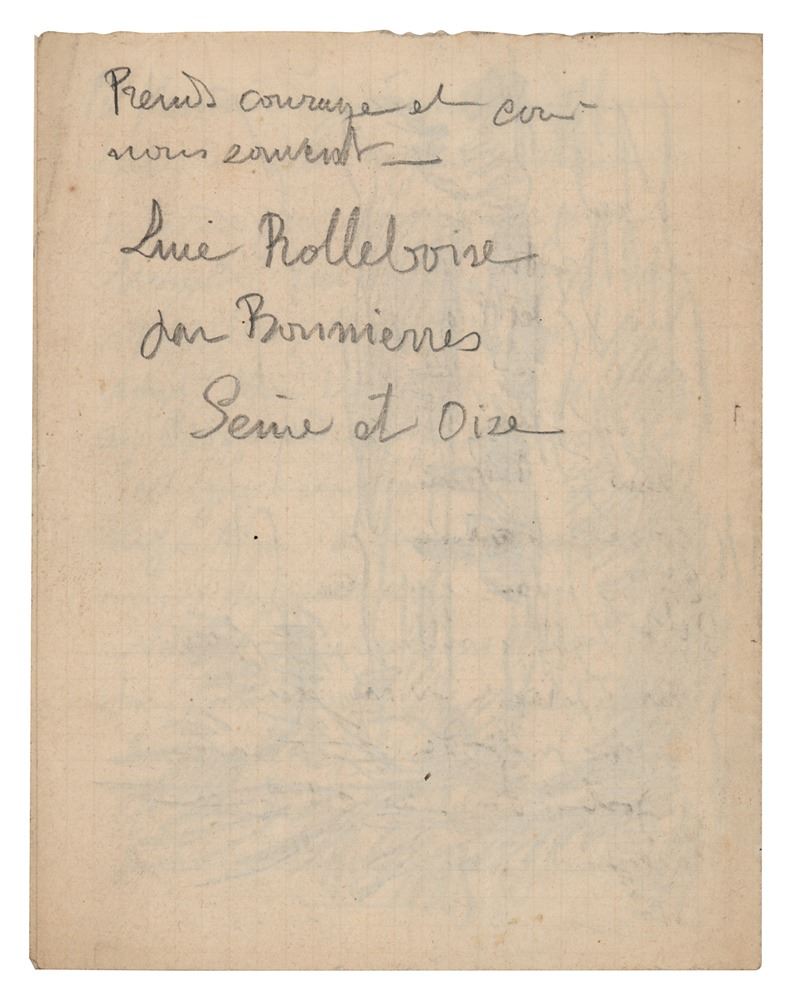 Prends courage et
nous souvent —
Luce Rolleboise
par Bonnierres
Seine et Oise